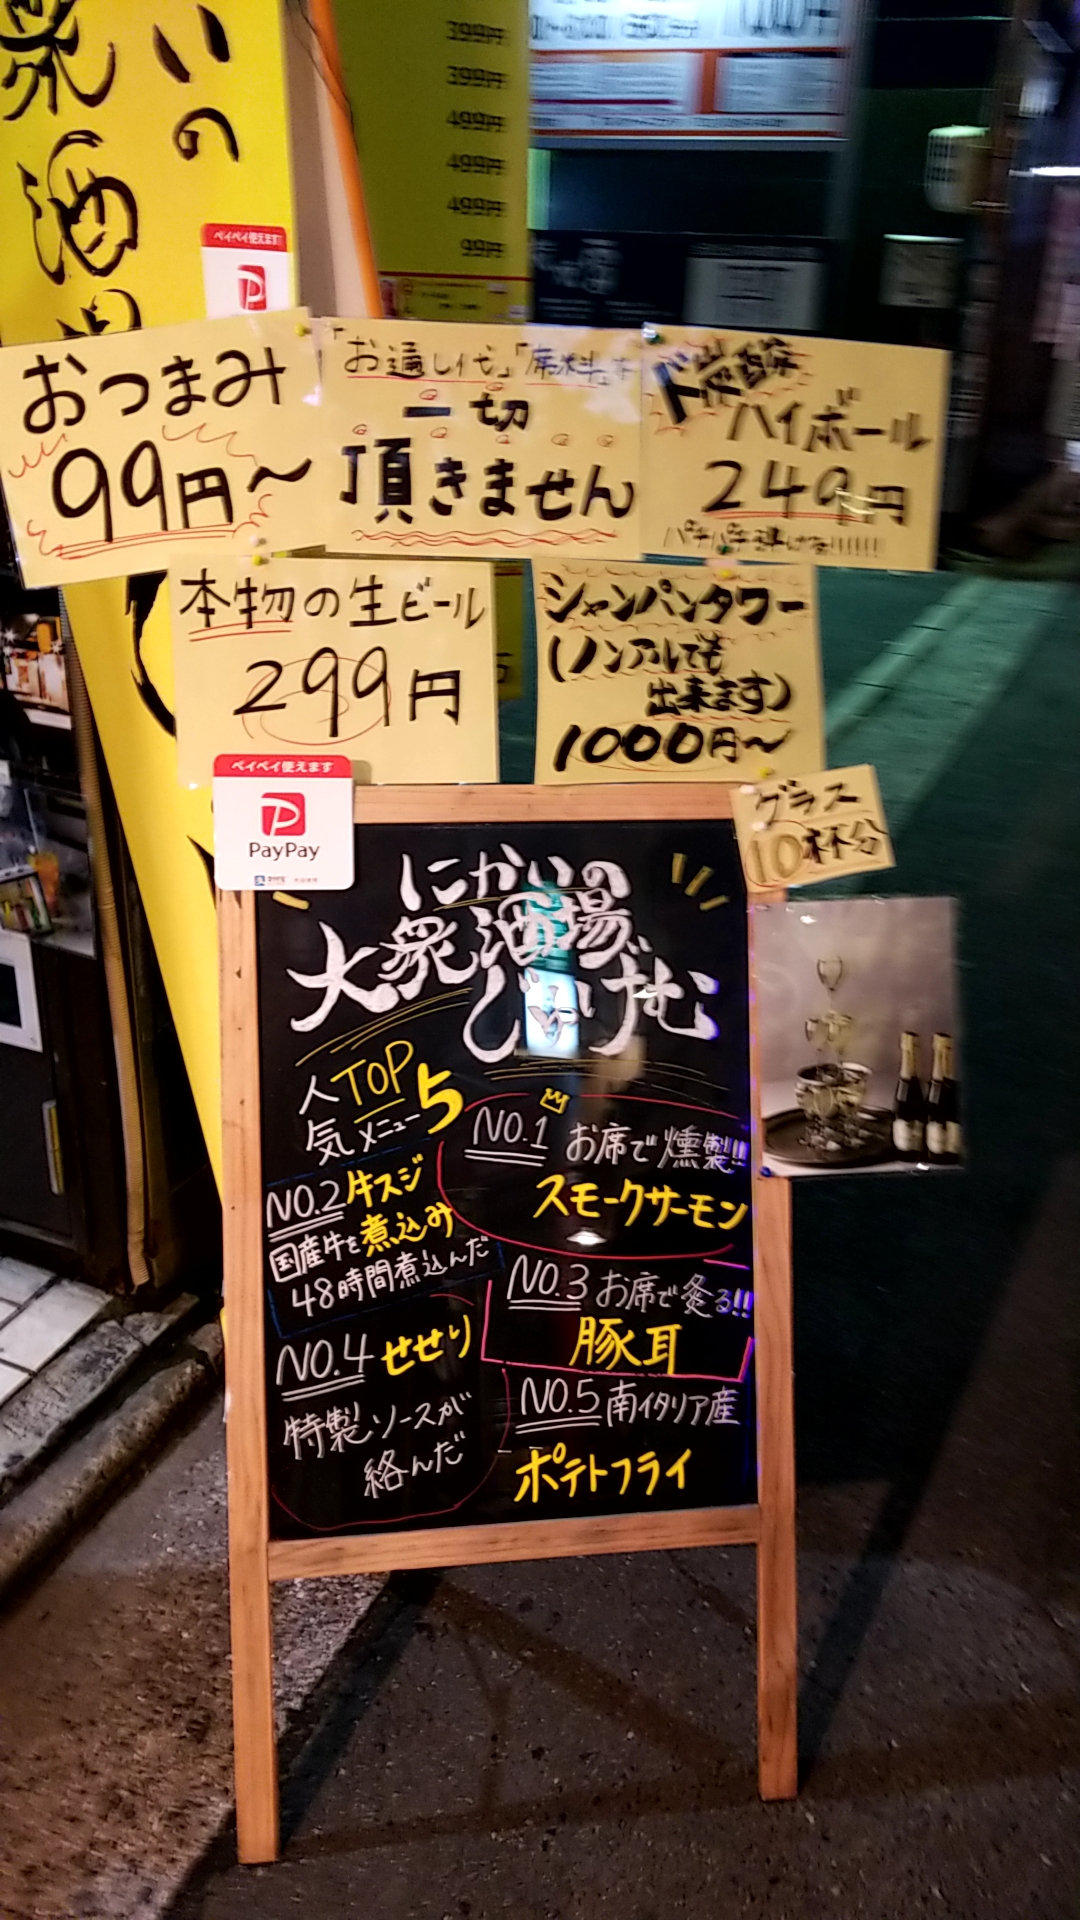 いの
衆酒場
399円
399円
499円
499円
499円
99円
ペイペイ使えます
おつまみ
99円〜
「お通し代」「席料」を
一切
頂きません
ド炭酸
ハイボール
249円
本物の生ビール
299円
シャンパンタワー
(ノンアルでも
出来ます)
1000円〜
グラス
10杯分
ペイペイ使えます
PayPay
にかいの
大衆酒場
じゅげむ
人気メニュー
TOP5
NO.1 お席で燻製!!
スモークサーモン
NO.2 牛スジ
煮込み
国産牛を
48時間煮込んだ
NO.3 お席で炙る!!
豚耳
NO.4 せせり
特製ソースが
絡んだ
NO.5 南イタリア産
ポテトフライ